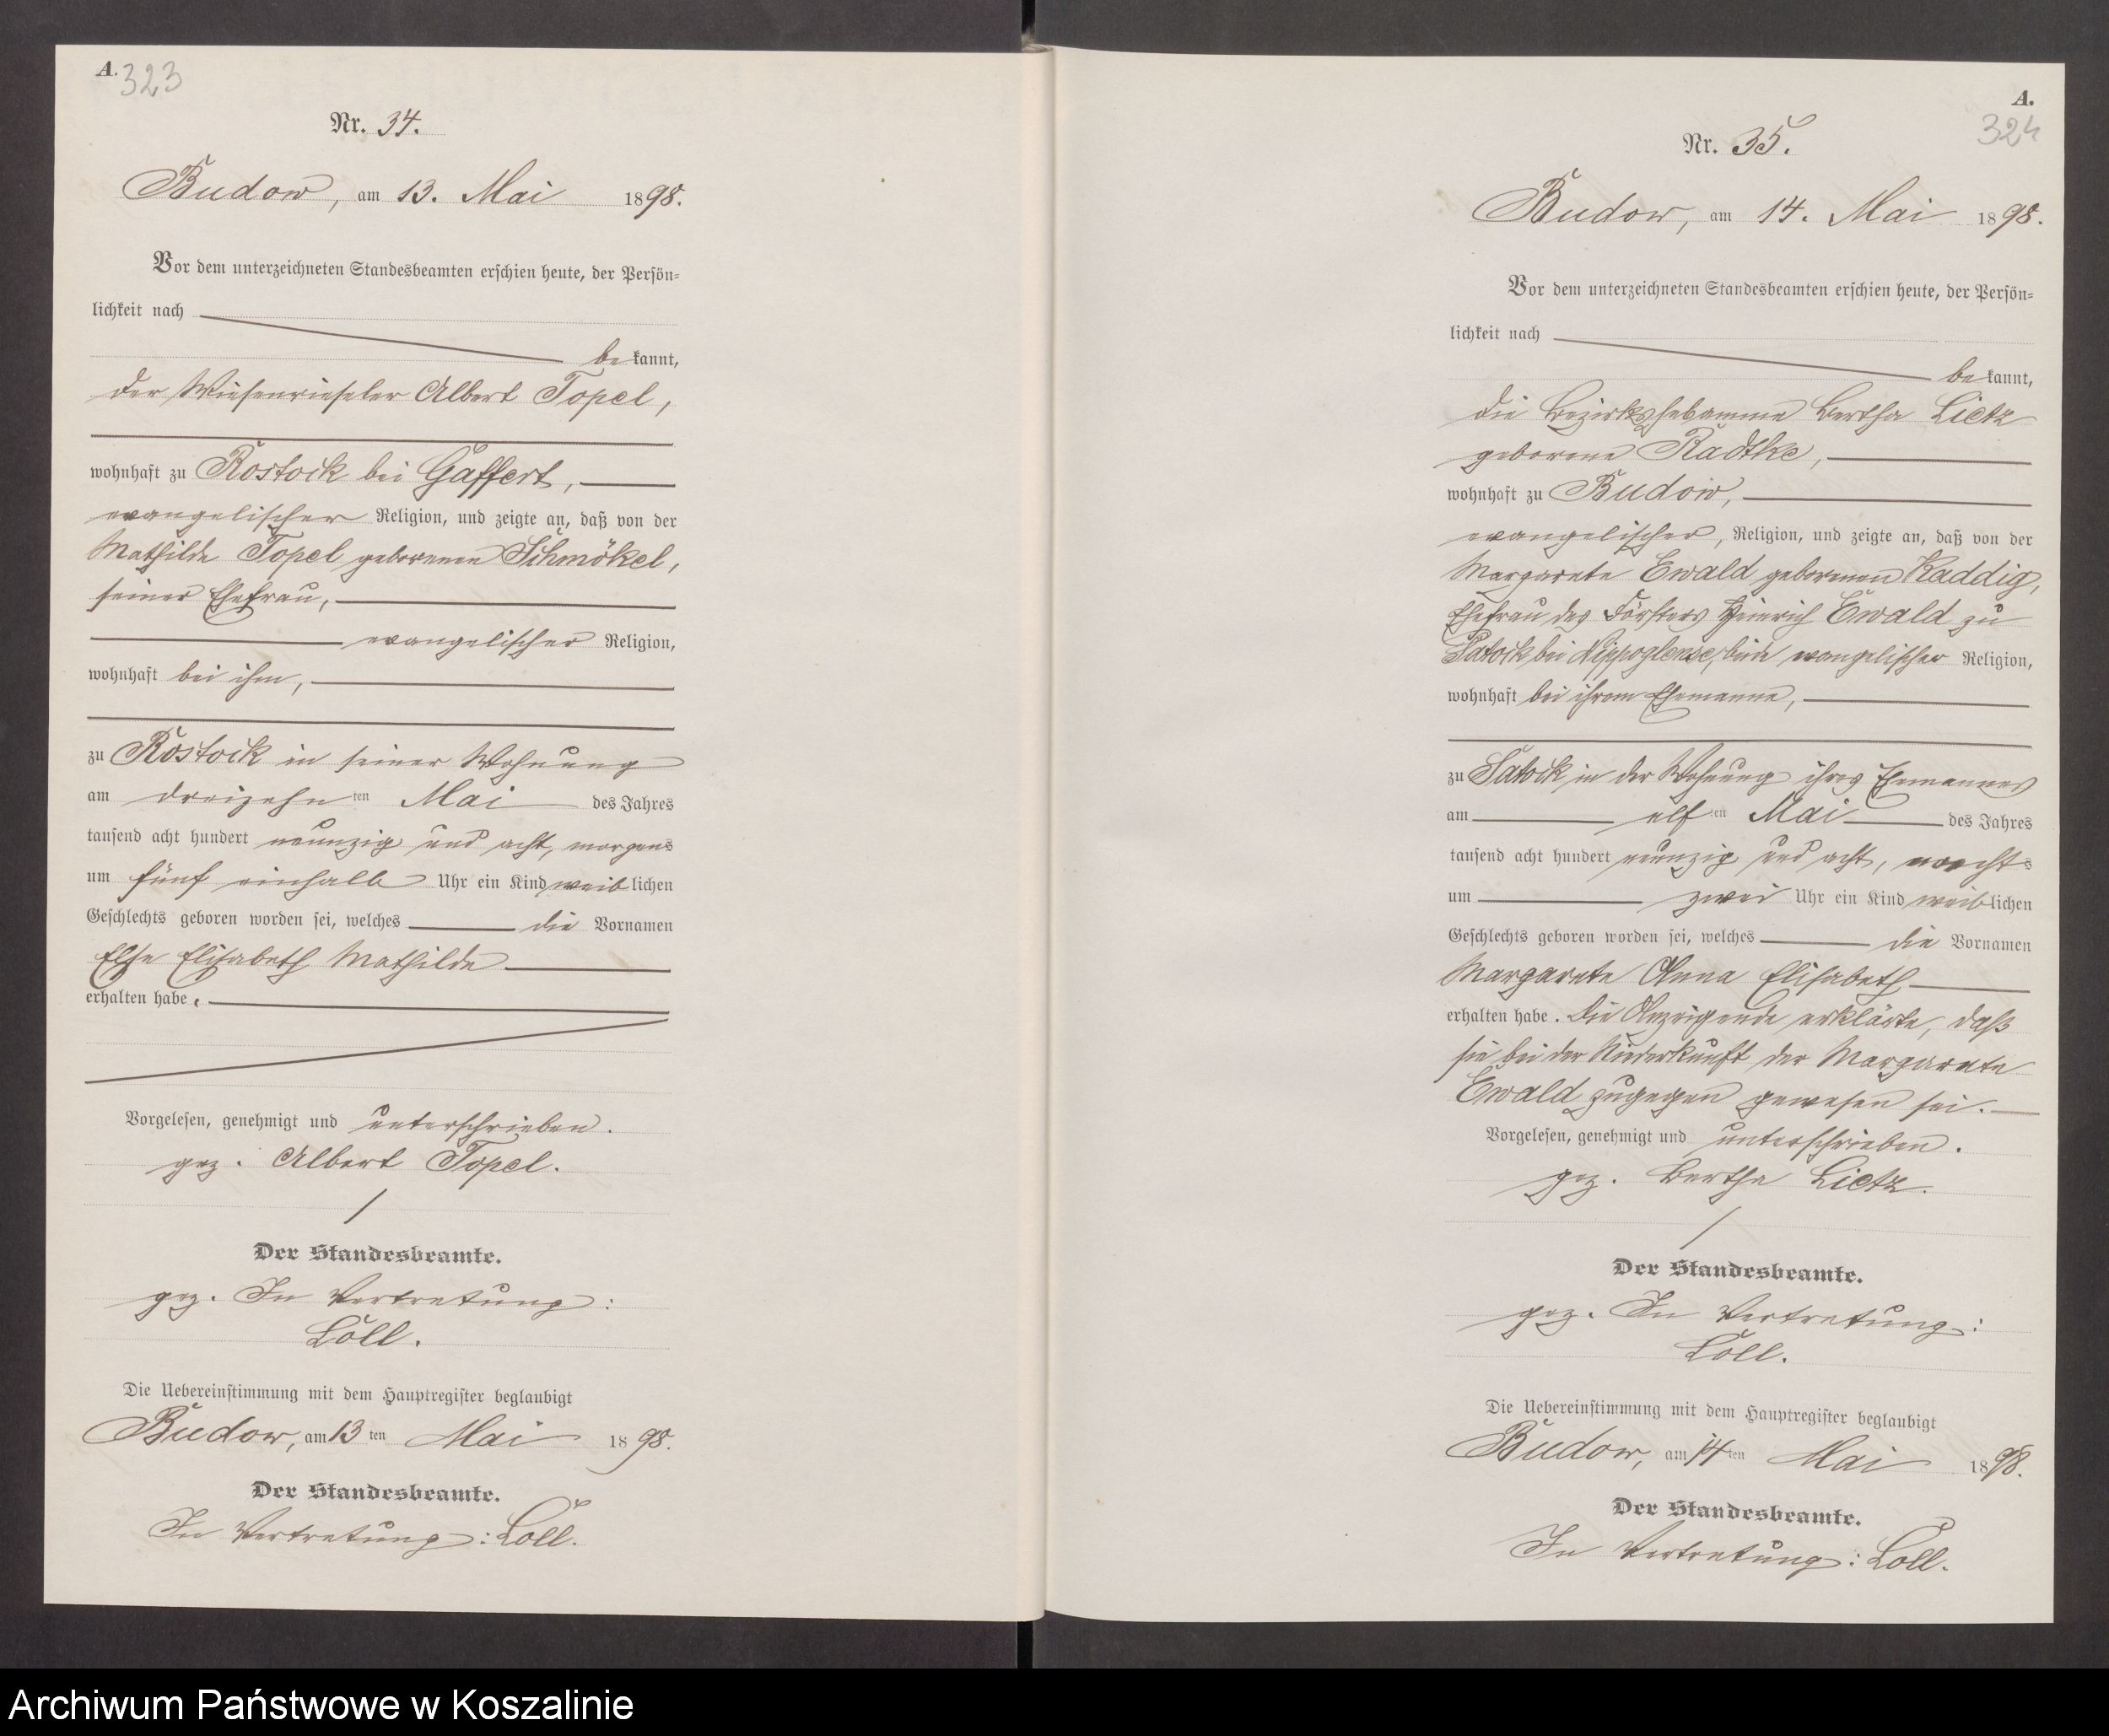 A. 323
Nr. 34.
Budow, am 13. Mai 1898.
Vor dem unterzeichneten Standesbeamten erschien heute, der Persön=
lichkeit nach
be kannt,
der Wiesenrieseler Albert Topel,
wohnhaft zu Rostock bei Gaffert,
evangelischer Religion, und zeigte an, daß von der
Mathilde Topel geborenen Schmökel,
seiner Ehefrau,
evangelischer Religion,
wohnhaft bei ihm,
zu Rostock in seiner Wohnung
am dreizehn ten Mai des Jahres
tausend acht hundert neunzig und acht, morgens
um fünf einhalb Uhr ein Kind weib lichen
Geschlechts geboren worden sei, welches die Vornamen
Else Elisabeth Mathilde
erhalten habe.
Vorgelesen, genehmigt und unterschrieben.
gez. Albert Topel.
Der Standesbeamte.
gez. In Vertretung:
Löll.
Die Uebereinstimmung mit dem Hauptregister beglaubigt
Budow, am 13 ten Mai 1898.
Der Standesbeamte.
In Vertretung: Löll.
A.
324
Nr. 35.
Budow, am 14. Mai 1898.
Vor dem unterzeichneten Standesbeamten erschien heute, der Persön=
lichkeit nach
be kannt,
die Bezirkshebamme Bertha Lietz
geborene Radtke,
wohnhaft zu Budow,
evangelischer, Religion, und zeigte an, daß von der
Margarete Ewald geborenen Kaddig,
Ehefrau des Försters Heinrich Ewald zu
Patock bei Nippoglense, beide evangelischer Religion,
wohnhaft bei ihrem Ehemanne,
zu Patock in der Wohnung ihres Ehemannes
am elf ten Mai des Jahres
tausend acht hundert neunzig und acht, nachts
um zwei Uhr ein Kind weib lichen
Geschlechts geboren worden sei, welches die Vornamen
Margarete Anna Elisabeth
erhalten habe. Die Anzeigende erklärte, daß
sie bei der Niederkunft der Margarete
Ewald zugegen gewesen sei.
Vorgelesen, genehmigt und unterschrieben.
gez. Bertha Lietz.
Der Standesbeamte.
gez. In Vertretung:
Löll.
Die Uebereinstimmung mit dem Hauptregister beglaubigt
Budow, am 14 ten Mai 1898.
Der Standesbeamte.
In Vertretung: Löll.
Archiwum Państwowe w Koszalinie